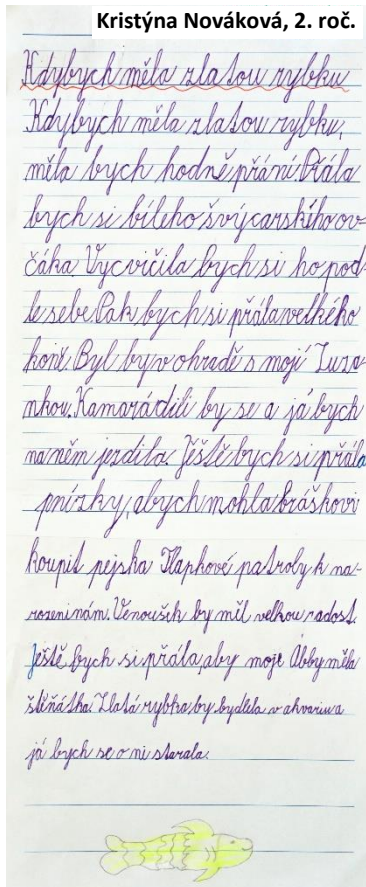 Kristýna Nováková, 2. roč.
Kdybych měla zlatou rybku
Kdybych měla zlatou rybku,
měla bych hodně přání. Přála
bych si bílého švýcarského ov-
čáka. Vycvičila bych si ho pod-
le sebe. Pak bych si přála velkého
koně. Byl by v ohradě s mojí Luza-
nkou. Kamarádili by se a já bych
na něm jezdila. Ještě bych si přála
pnízky, abych mohla bráškovi
koupit pejska Tlapkové patroly k na-
rozeninám. Venoušek by měl velkou radost.
Ještě bych si přála, aby moje Abby měla
štěňátka. Zlatá rybka by bydlela v akvariu a
já bych se o ni starala.